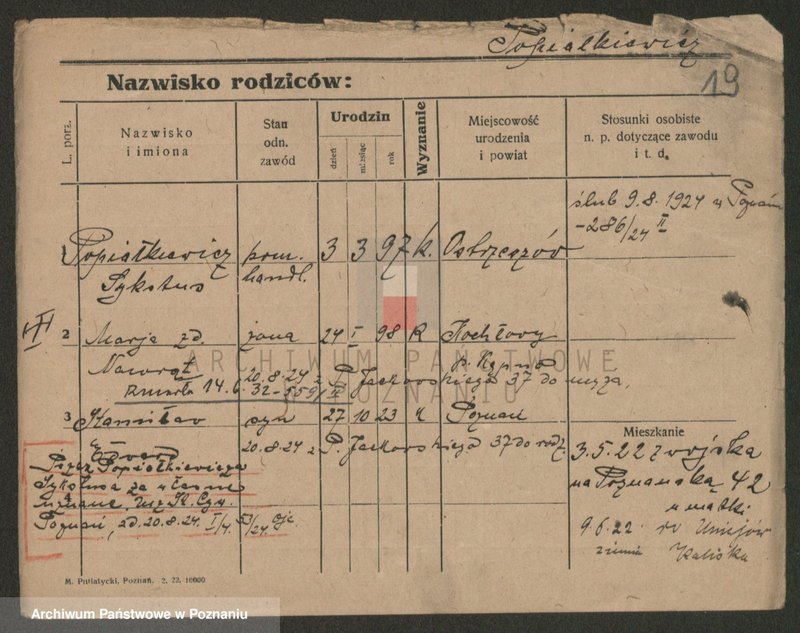 Popiałkiewicz
19
Nazwisko rodziców:
L. porz.
Nazwisko
i imiona
Stan
odn.
zawód
Urodzin
dzień
miesiąc
rok
Wyznanie
Miejscowość
urodzenia
i powiat
Stosunki osobiste
n. p. dotyczące zawodu
i t. d.
ślub 9.8.1924 w Poznaniu
-286/24 II
1 Popiałkiewicz pom. 3 3 97 k. Ostrzeszów
Sykstus handl.
2 Marja zd. żona 24 I 98 k Kochłowy
Nawrot 20.8.24 z P. Jackowskiego 37 do męża.
p. Kępno
zmarła 14.6.32-559/II
3 Stanisław syn 27 10 23 k Poznań
Edward 20.8.24 z P. Jackowskiego 37 do rodz.
Przez Popiałkiewicza
Sykstusa za własne
uznane, Urz. St. Cyw.
Poznań, zd. 20.8.24. I/4 53/24
Mieszkanie
3.5.22 z wojska
na Poznańską 42
u matki
9.6.22 do Uniejów
Kaliska
M. Putiatycki, Poznań. 2. 22. 10000
ARCHIWUM PAŃSTWOWE
W POZNANIU
Archiwum Państwowe w Poznaniu